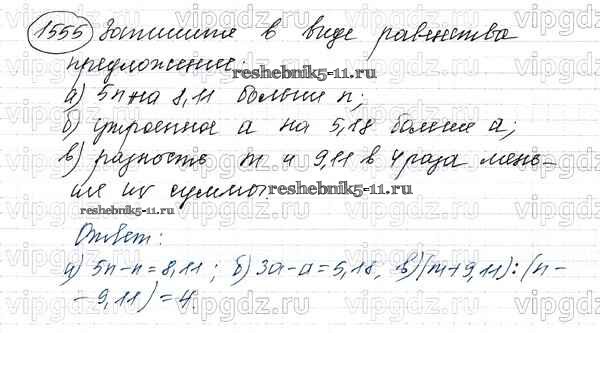 1555 Запишите в виде равенства
предложение:
reshebnik5-11.ru
а) 5n на 8,11 больше n;
б) утроенное а на 5,18 больше а;
в) разность m и 9,11 в 4 раза мень-
ше их суммы.
reshebnik5-11.ru
reshebnik5-11.ru
Ответ:
а) 5n-n=8,11; б) 3а-а=5,18, в) (m+9,11):(n-
-9,11)=4
vipgdz.ru